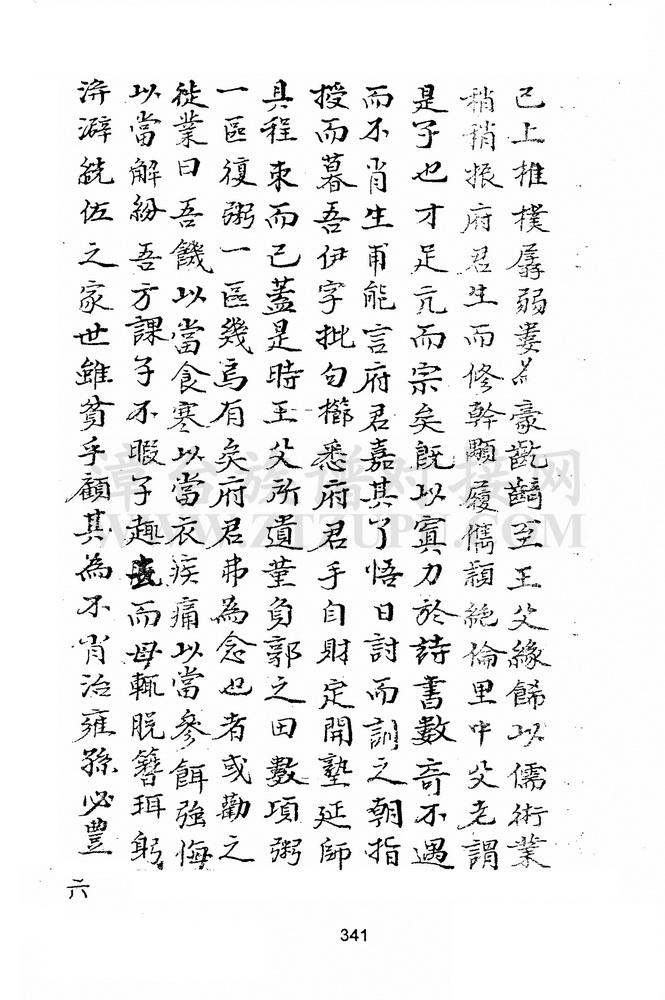 已上椎樸孱弱婁為豪齮齕至王父緣餙以儒術業
稍稍振府君生而修幹顒履儁頴絕倫里中父老謂
是子也才足亢而宗矣旣以窴力於詩書數奇不遇
而不肖生甫能言府君嘉其了悟日討而訓之朝指
授而暮吾伊字批句櫛悉府君手自財定開塾延師
具程束而已蓋是時王父所遺堇負郭之田數項粥
一區復粥一區幾焉有矣府君弗為念也者或勸之
徙業曰吾饑以當食寒以當衣疾痛以當參餌強悔
以當解紛吾方課子不暇子趣去而母輒脫簪珥躬
洴澼絖伍之家世雖貧乎顧其為不肖治雍孫必豊
六
341
漳台族谱对接网
WWW.ZTZUPU.COM